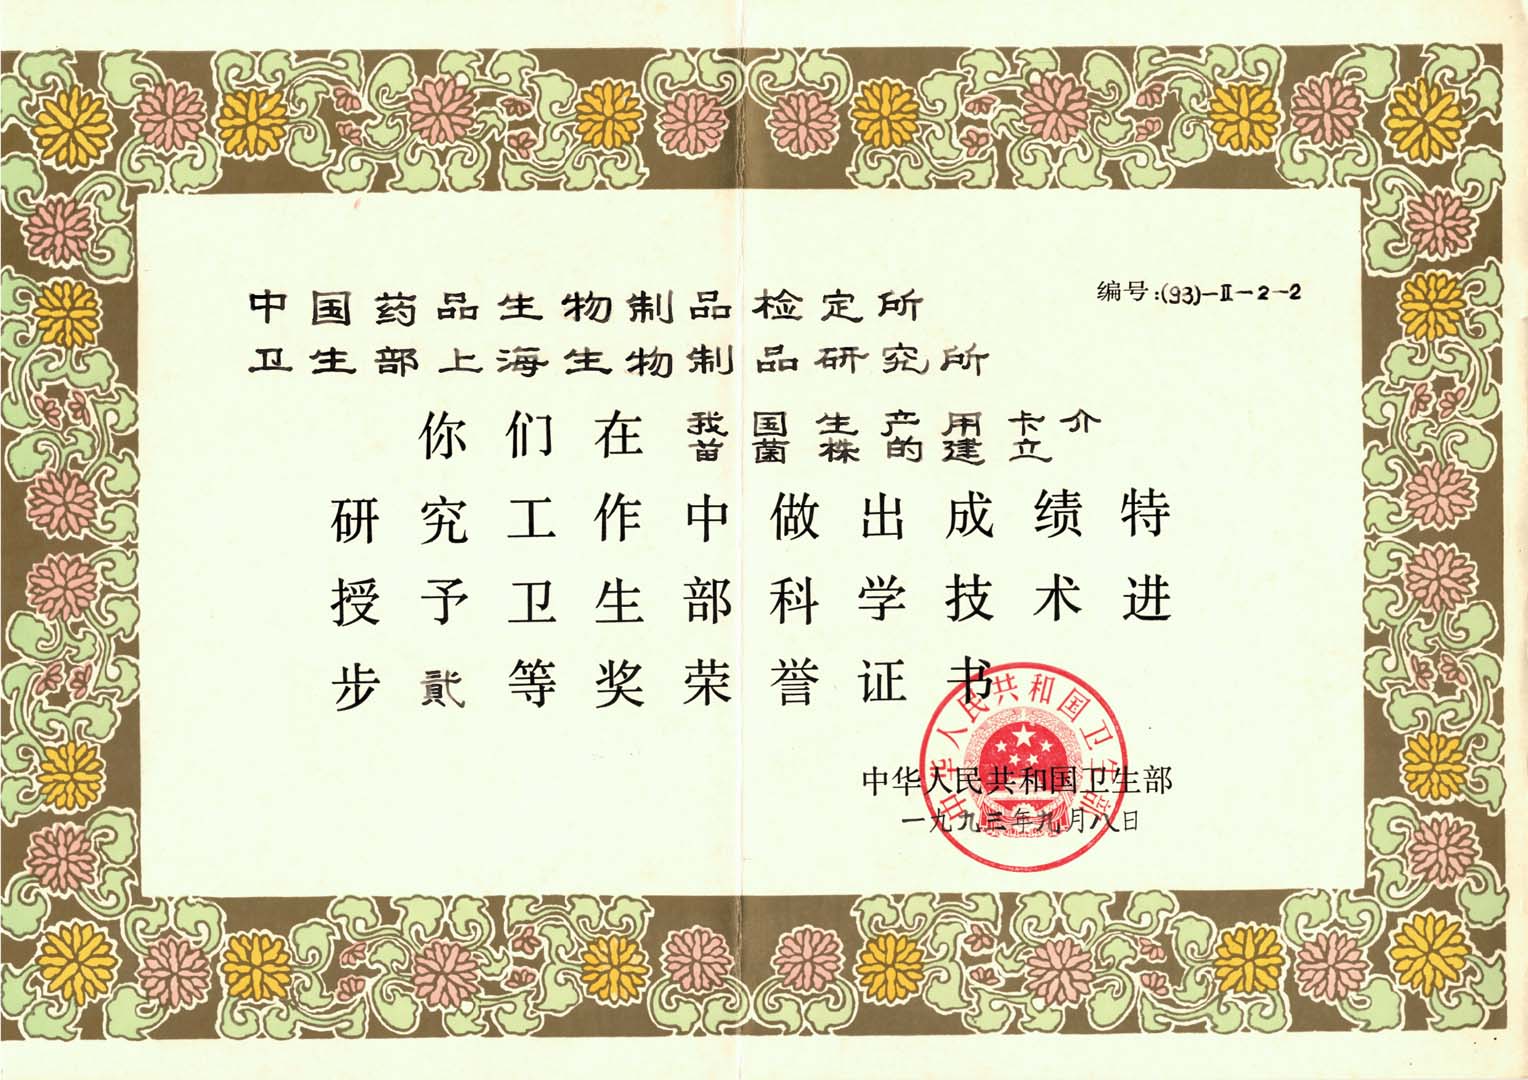 编号:(93)-Ⅱ-2-2
中国药品生物制品检定所
卫生部上海生物制品研究所
你们在我国生产用卡介
苗菌株的建立
研究工作中做出成绩特
授予卫生部科学技术进
步貳等奖荣誉证书
中华人民共和国卫生部
中华人民共和国卫生部
一九九三年九月八日